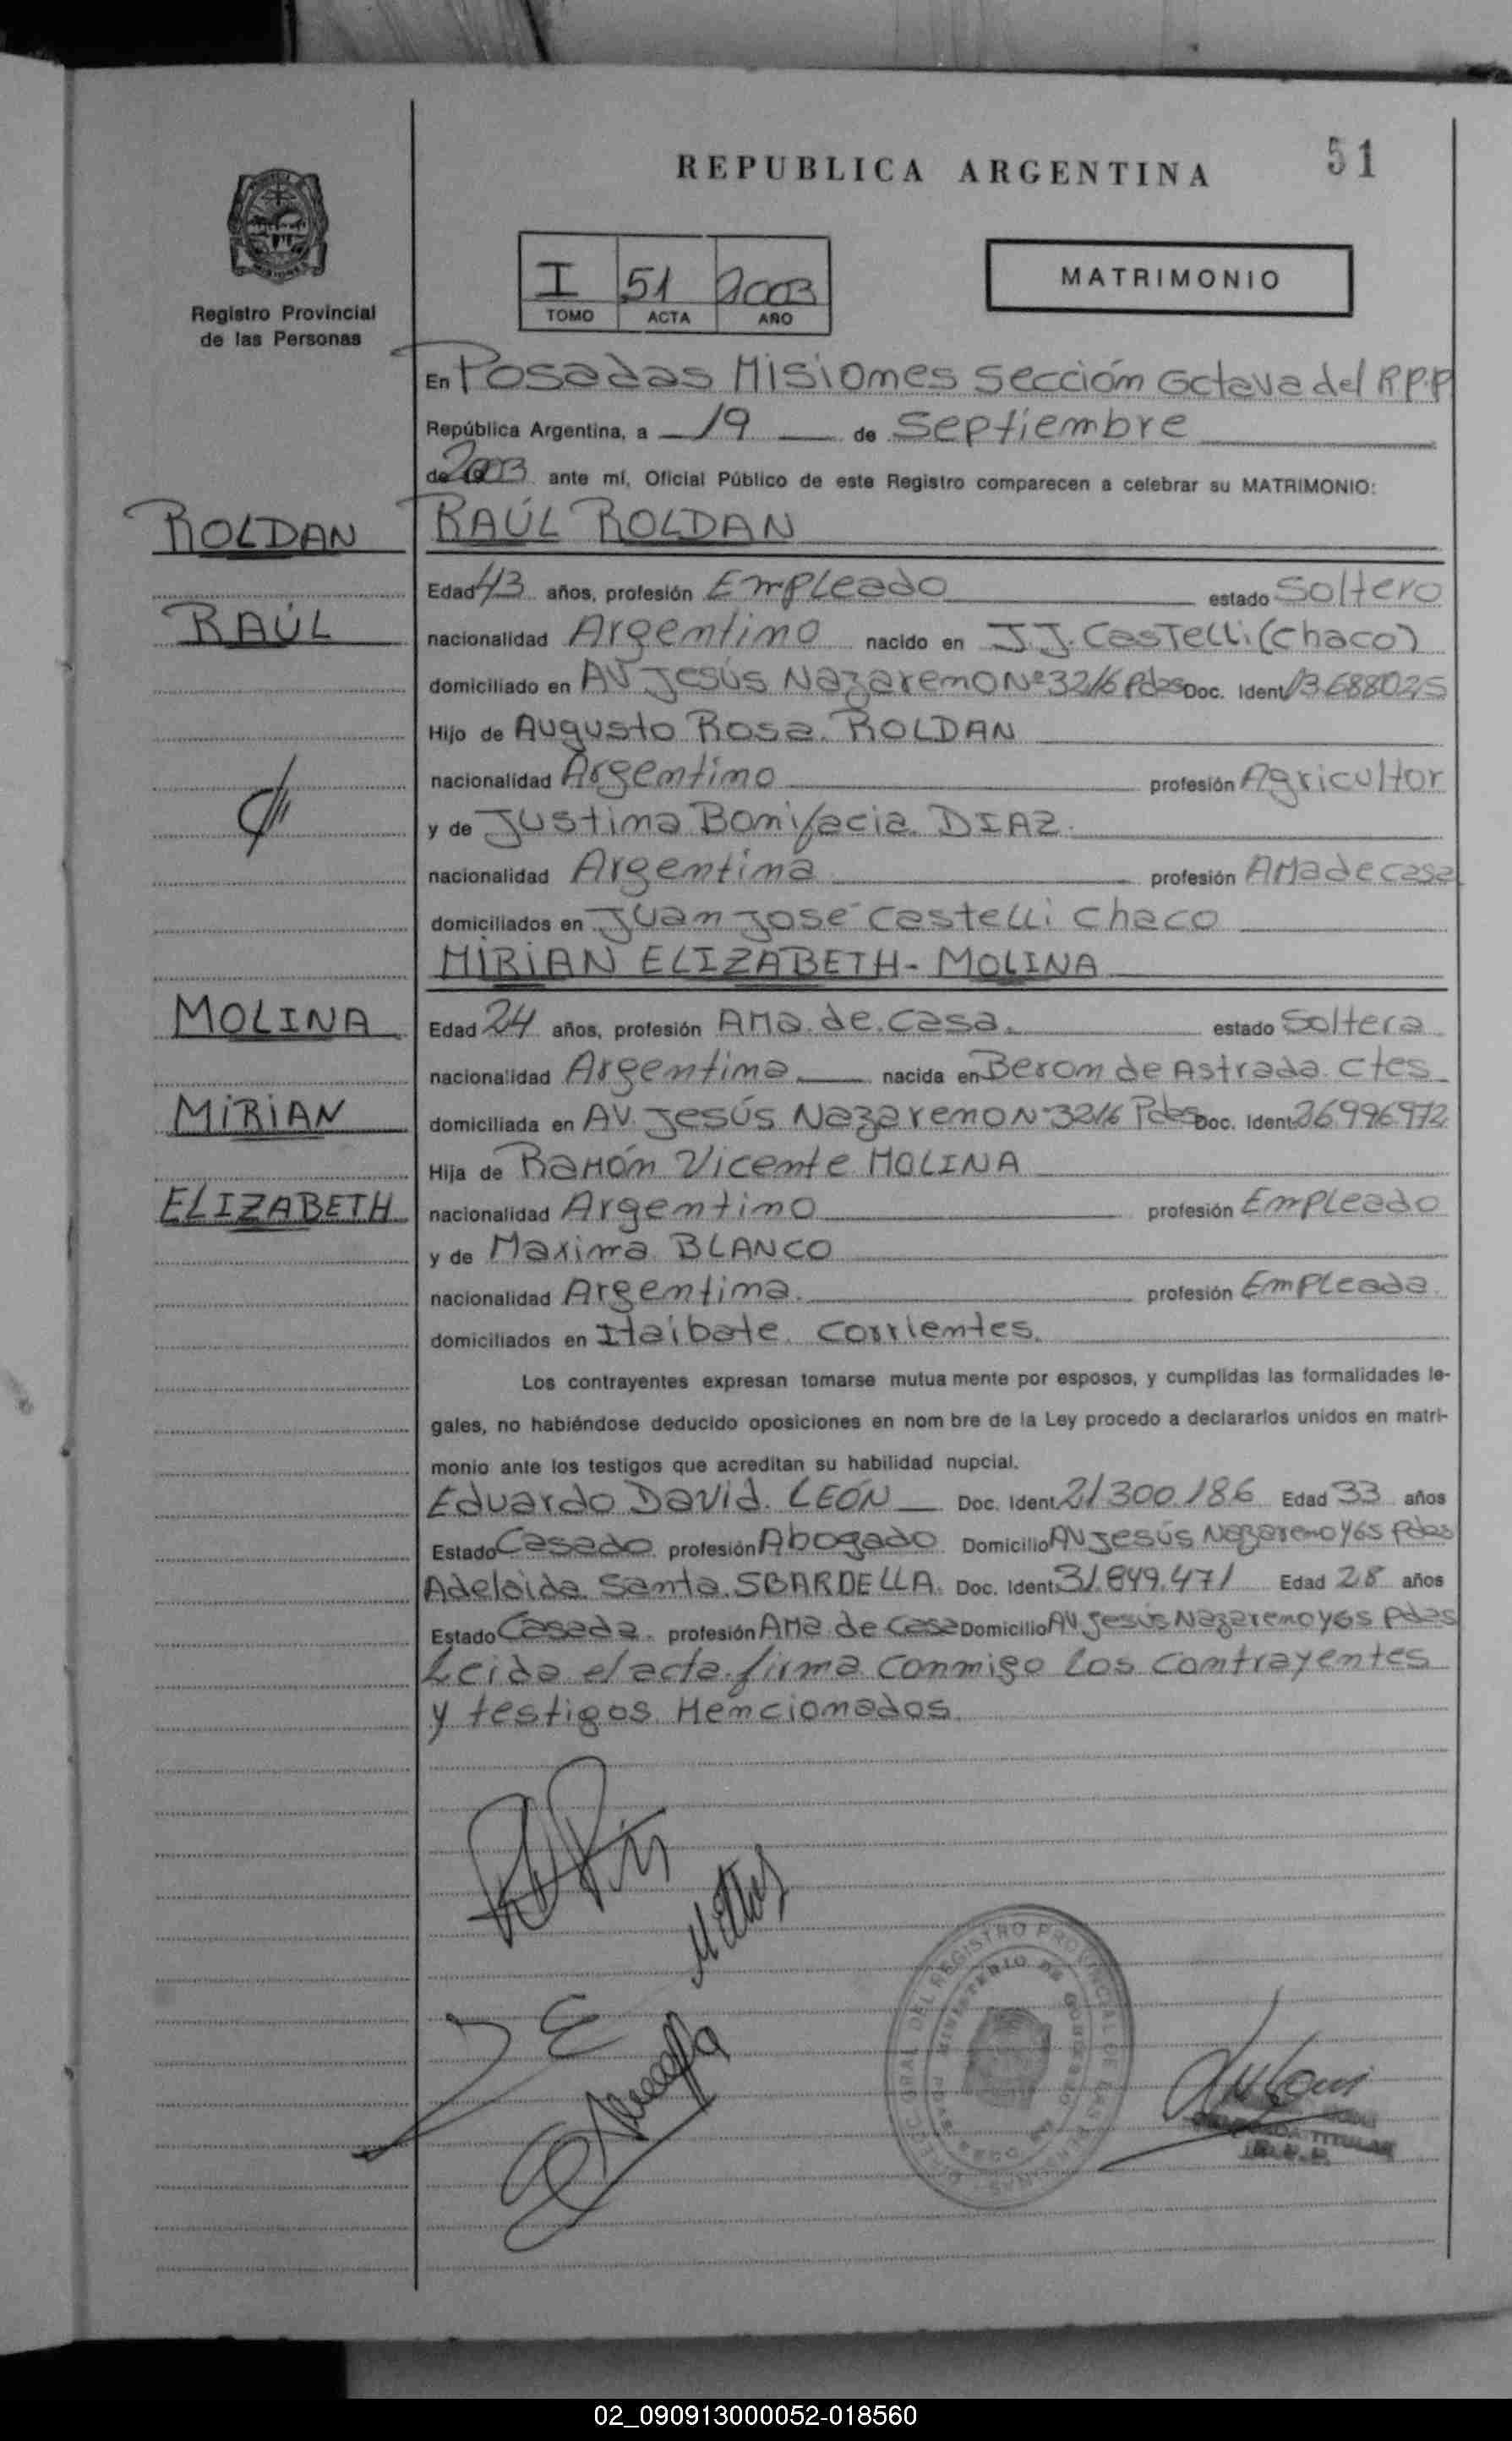 REPUBLICA ARGENTINA
51
Registro Provincial
de las Personas
I 51 2003
TOMO ACTA AÑO
MATRIMONIO
En Posadas Misiones Sección Octava del R.P.P
República Argentina, a 19 de Septiembre
de 2003 ante mí, Oficial Público de este Registro comparecen a celebrar su MATRIMONIO:
ROLDAN
RAÚL ROLDAN
Edad 43 años, profesión Empleado estado Soltero
RAÚL
nacionalidad Argentino nacido en J.J. Castelli (Chaco)
domiciliado en AV Jesús Nazareno Nº 3216 Pdas Doc. Ident 13688025
Hijo de Augusto Rosa ROLDAN
nacionalidad Argentino profesión Agricultor
y de Justina Bonifacia DIAZ.
nacionalidad Argentina profesión AMa de casa
domiciliados en Juan José Castelli Chaco
MIRIAN ELIZABETH - MOLINA
MOLINA
Edad 24 años, profesión AMa de casa. estado Soltera
nacionalidad Argentina nacida en Beron de Astrada Ctes
MIRIAN
domiciliada en AV. Jesús Nazareno Nº 3216 Pdas Doc. Ident. 26.996.972
Hija de Ramón Vicente MOLINA
ELIZABETH
nacionalidad Argentino profesión Empleado
y de Maxima BLANCO
nacionalidad Argentina. profesión Empleada
domiciliados en Itaíbate Corrientes.
Los contrayentes expresan tomarse mutua mente por esposos, y cumplidas las formalidades le-
gales, no habiéndose deducido oposiciones en nom bre de la Ley procedo a declararlos unidos en matri-
monio ante los testigos que acreditan su habilidad nupcial.
Eduardo David LEÓN Doc. Ident. 21300.186 Edad 33 años
Estado Casado profesión Abogado Domicilio AV Jesús Nazareno y 65 Pdas
Adelaida Santa SBARDELLA. Doc. Ident. 31.849.471 Edad 28 años
Estado Casada profesión AMa de Casa Domicilio AV. Jesús Nazareno y 65 Pdas
Leida el acta firma conmigo los contrayentes
y testigos Mencionados.
DIREC. GRAL. DEL REGISTRO PROVINCIAL DE LAS PERSONAS
MINISTERIO DE GOBIERNO
TITULAR
R.P.P.
02_090913000052-018560